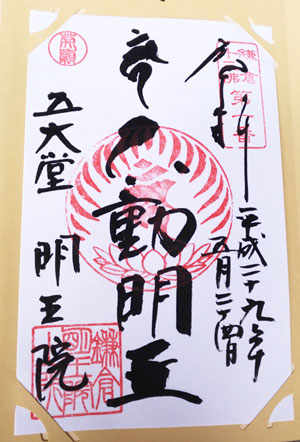 奉拝
鎌倉
十三佛
第一番
平成二十九年
五月二十四日
不動明王
五大堂 明王院
鎌倉